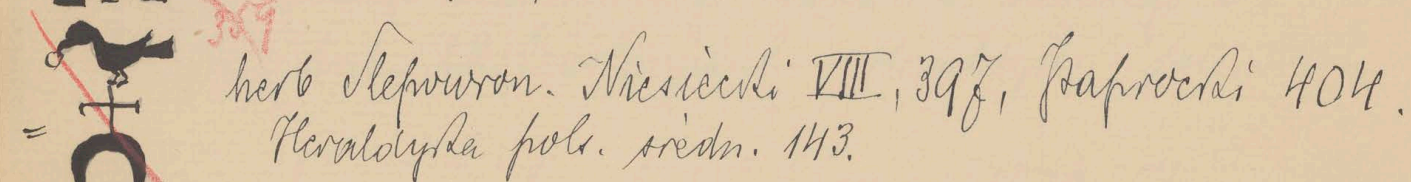 359
herb Ślepowron. Niesiecki VIII, 397, Paprocki 404.
Heraldyka pols. średn. 143.